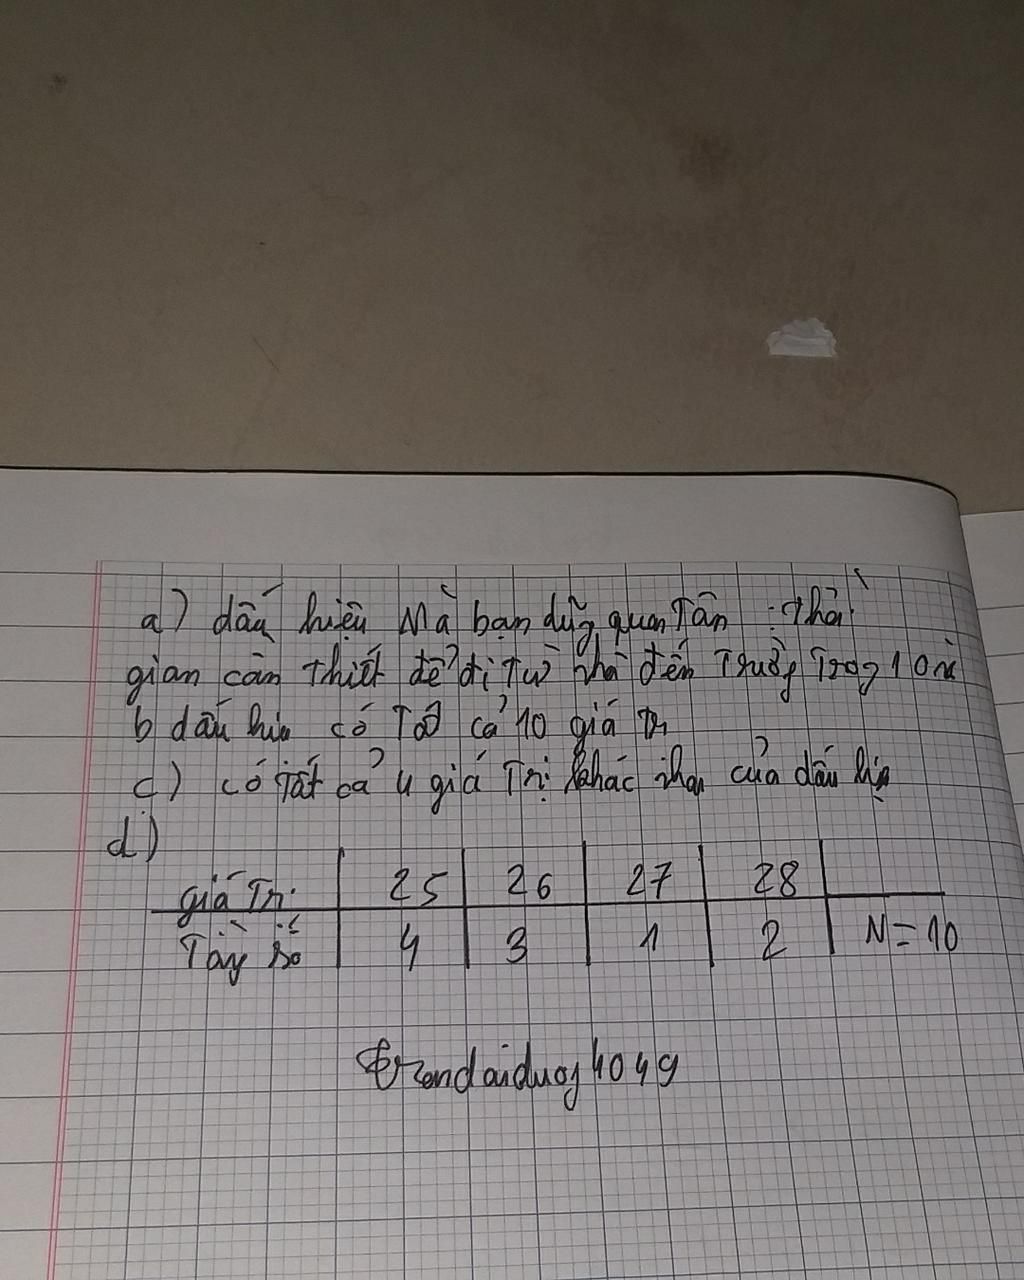 a) dấu hiệu Mà bạn dũng quan Tân : thời
gian cần thiết để đi Từ nhà đến Trường Trog 10
b dấu có Tất cả 10 giá Trị
c) có tất cả 4 giá Trị khác nhau của dấu
d)
giá Trị 25 26 27 28
Tầng số 4 3 1 2 N=10
trandaiduog4049